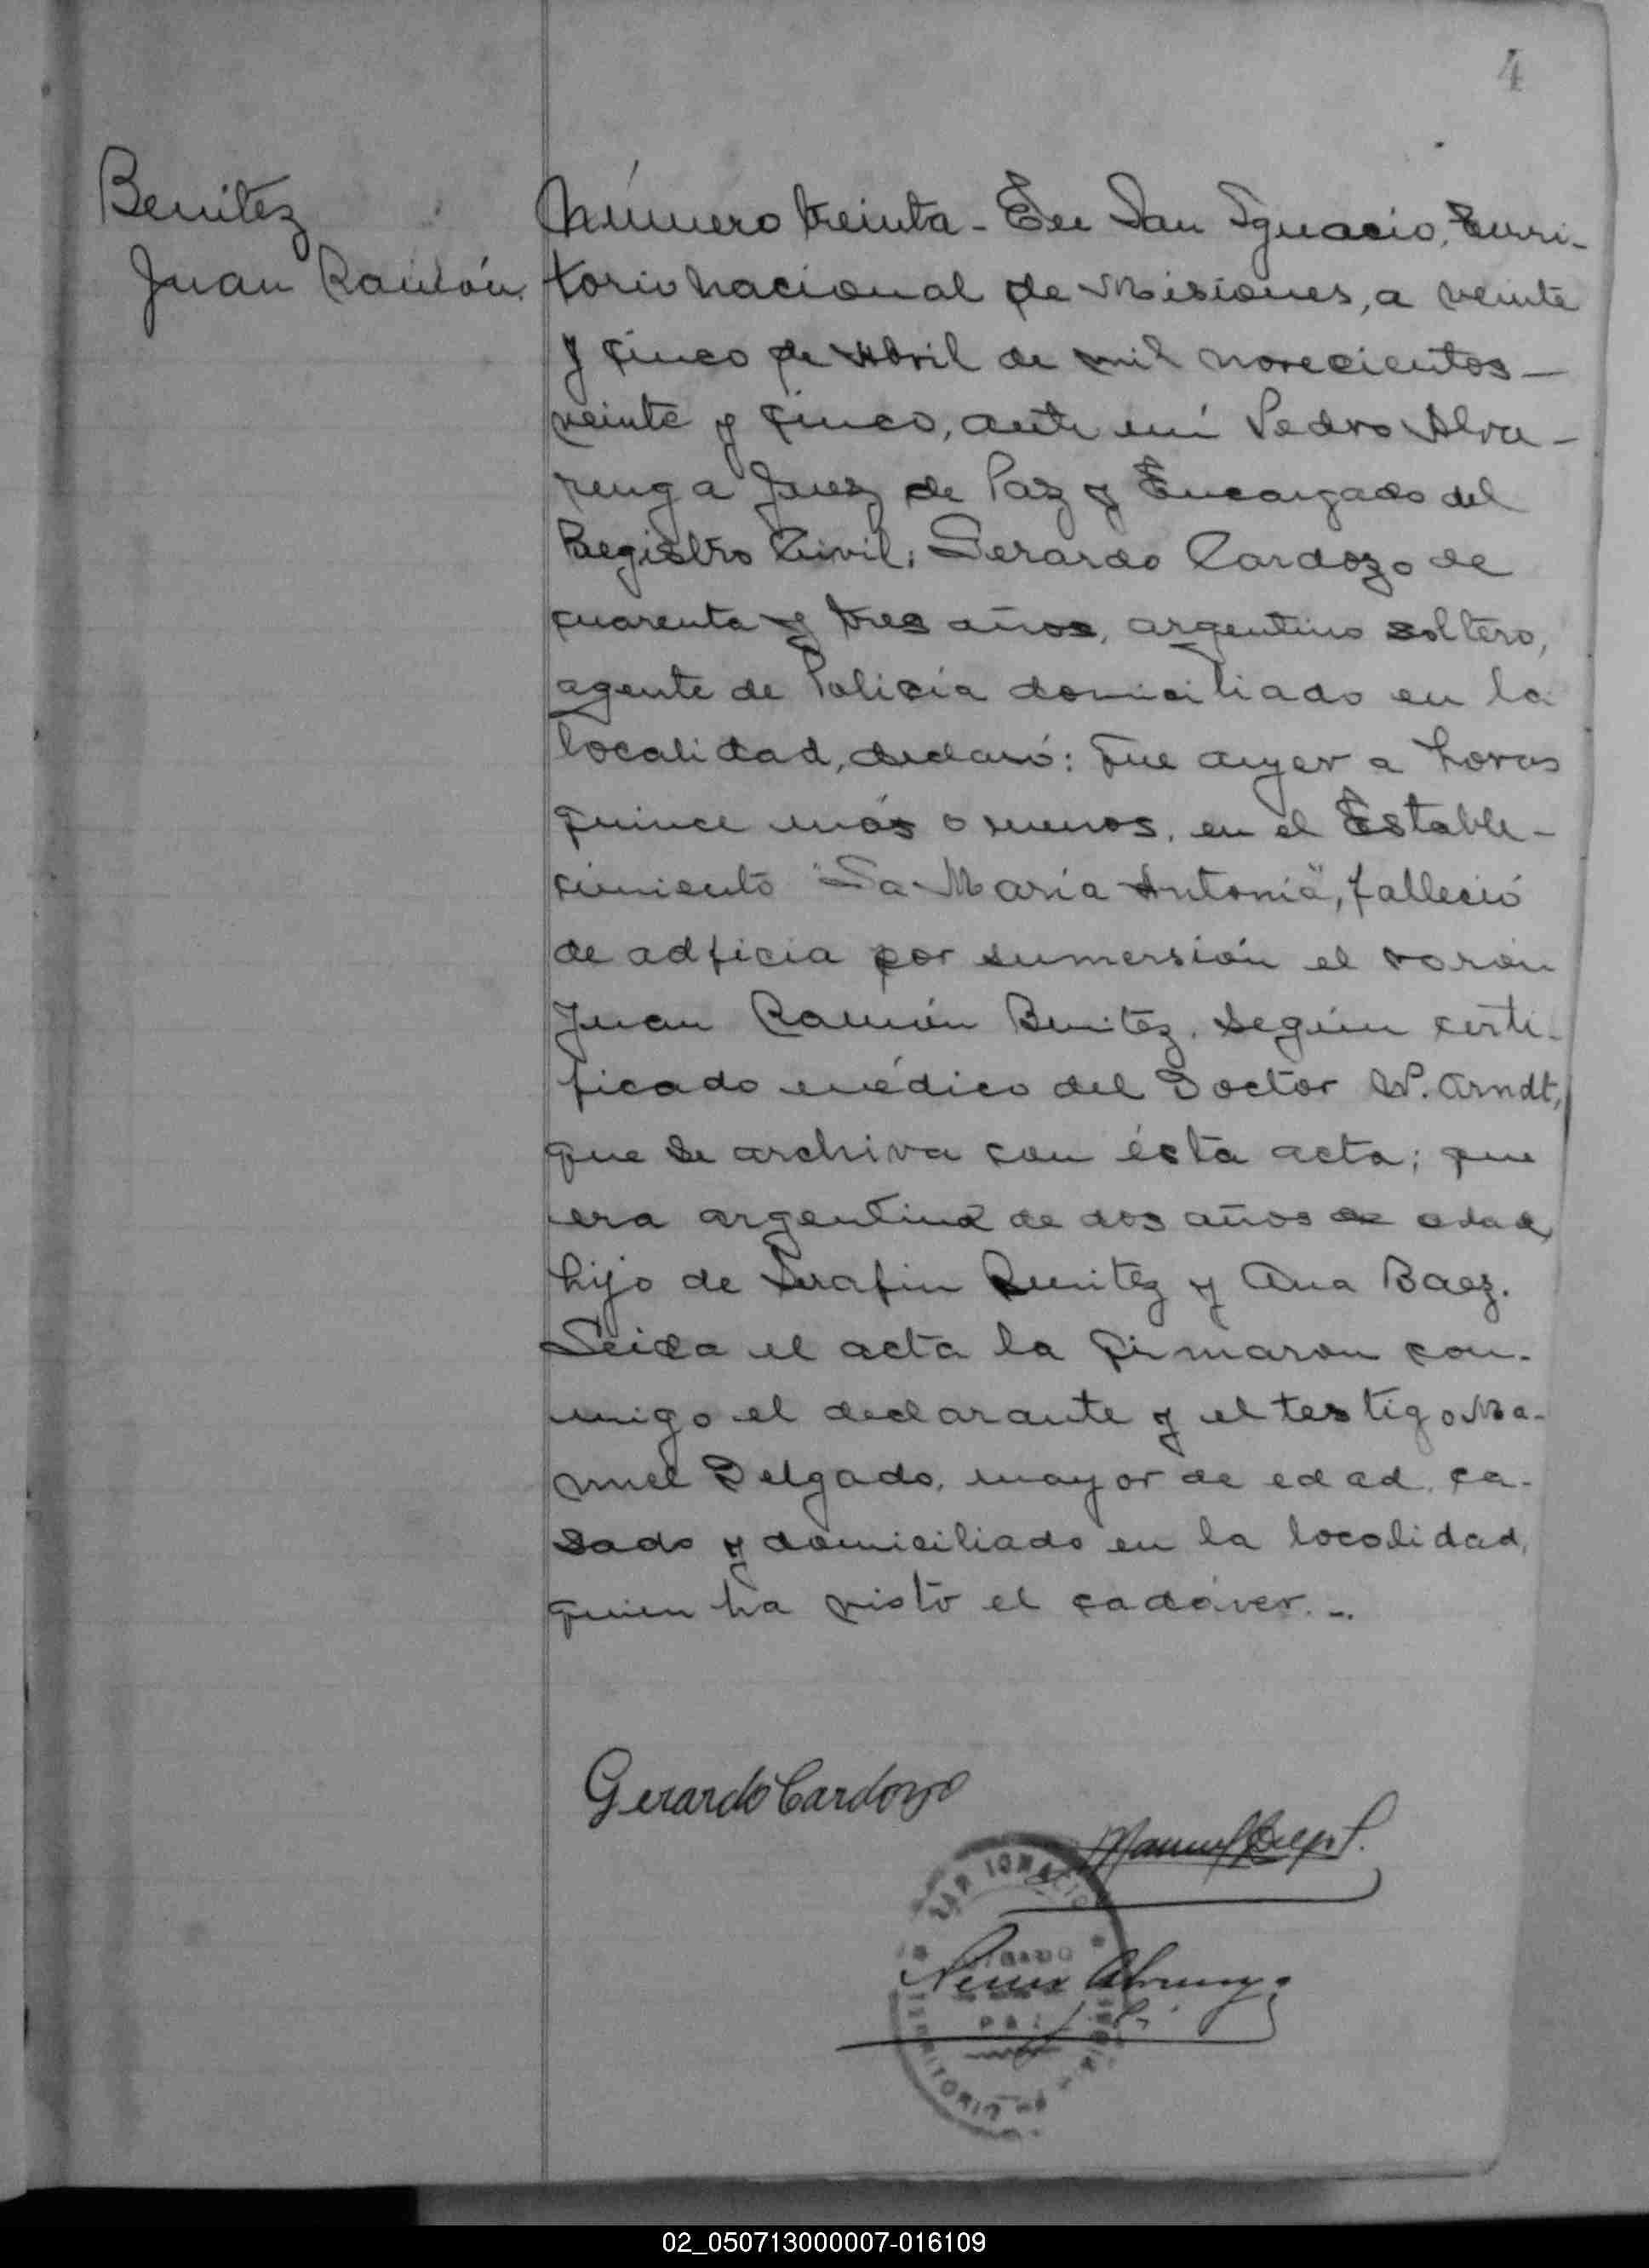 4
Benitez
Juan Ramón.
Número treinta - En San Ignacio, Terri-
torio nacional de Misiones, a veinte
y cinco de Abril de mil novecientos -
veinte y cinco, ante mí Pedro Alva-
renga Juez de Paz y Encargado del
Registro Civil; Gerardo Cardozo de
cuarenta y tres años, argentino soltero,
agente de Policía domiciliado en la
localidad, declaró: Que ayer a horas
quince más o menos, en el Estable-
cimiento "La María Antonia", falleció
de adficia por sumersión el varón
Juan Ramón Benitez, según certi-
ficado médico del Doctor W. Arndt,
que se archiva con ésta acta; que
era argentino de dos años de edad,
hijo de Serafin Benitez y Ana Baez.
Leida el acta la firmaron con-
migo el declarante y el testigo Ma-
nuel Delgado, mayor de edad, ca-
sado y domiciliado en la localidad,
quien ha visto el cadáver. -.
Gerardo Cardozo
Manuel
SAN IGNACIO
PAZ
TERRITORIO
02_050713000007-016109